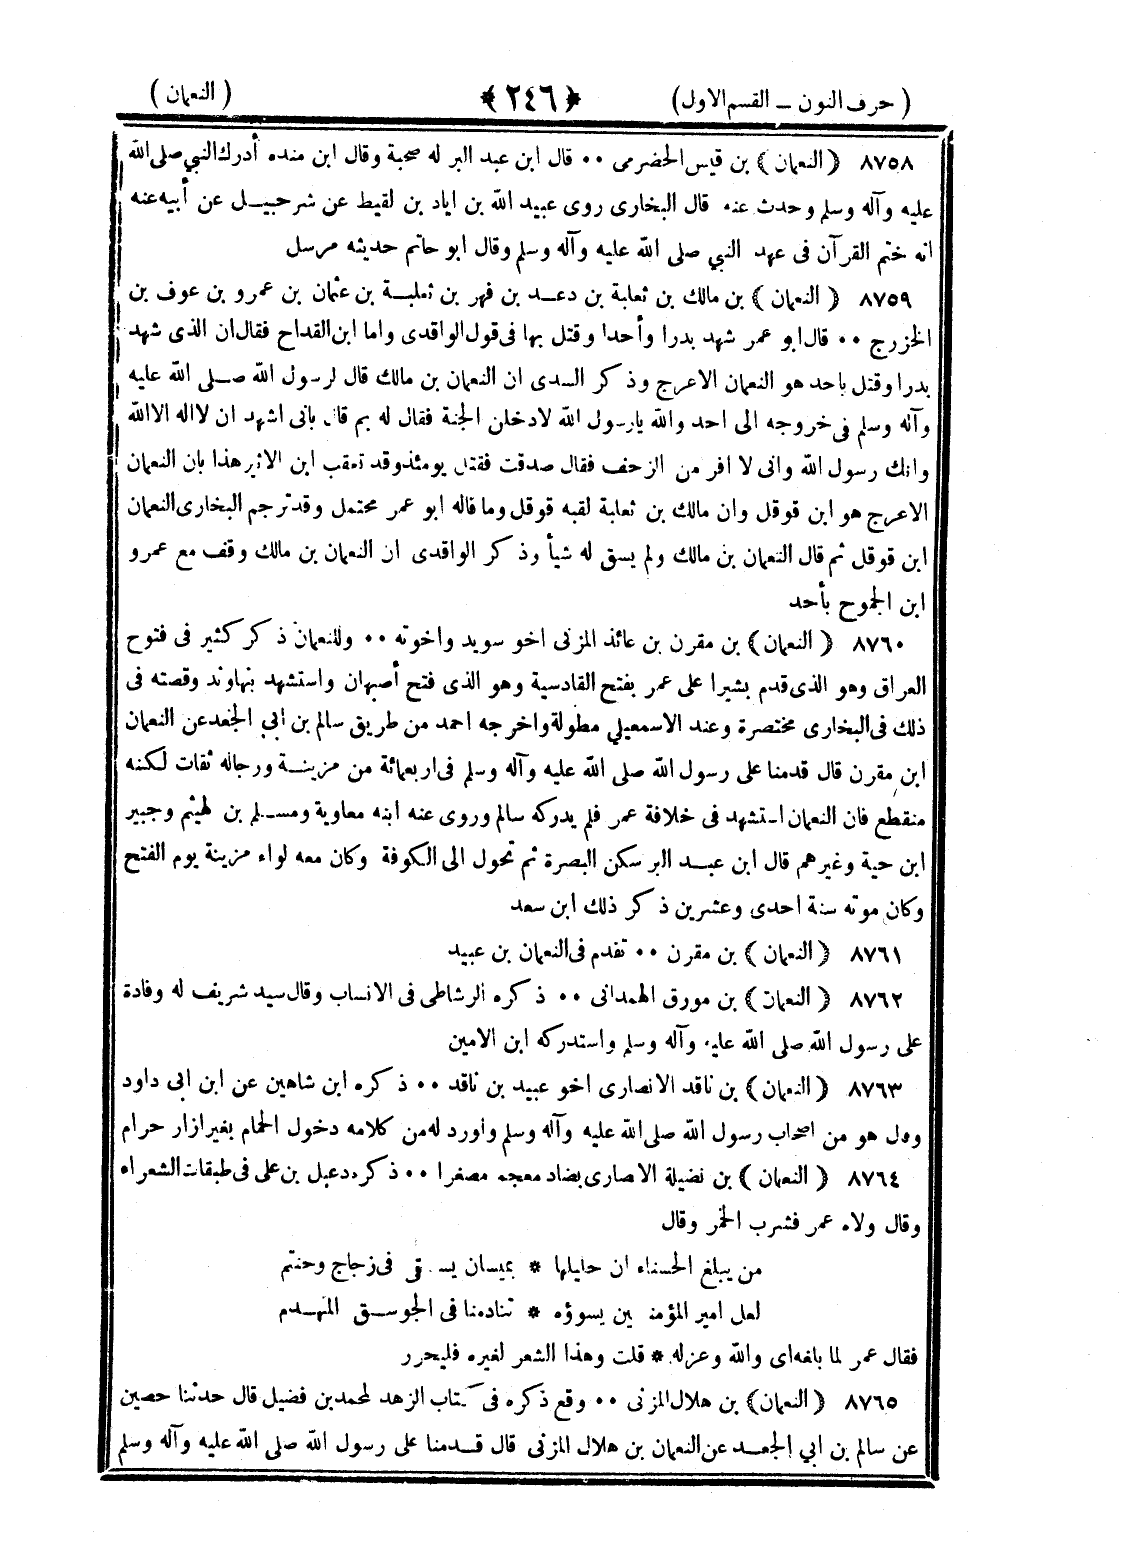 ( حرف النون – القسم الاول) ﴿ ٢٤٦ ﴾ ( النعمان )
٨٧٥٨ ( النعمان ) بن قيس الحضرمى ٠٠ قال ابن عبد البر له صحبة وقال ابن منده أدرك النبي صلى الله
عليه وآله وسلم وحدث عنه قال البخارى روى عبيد الله بن اياد بن لقيط عن شرحبيل عن أبيه عنه
انه ختم القرآن فى عهد النبي صلى الله عليه وآله وسلم وقال ابو حاتم حديثه مرسل
٨٧٥٩ ( النعمان ) بن مالك بن ثعلبة بن دعد بن فهر بن ثعلبة بن عثمان بن عمرو بن عوف بن
الخزرج ٠٠ قال ابو عمر شهد بدرا وأحدا وقتل بها فى قول الواقدى واما ابن القداح فقال ان الذى شهد
بدرا وقتل باحد هو النعمان الاعرج وذكر السدى ان النعمان بن مالك قال لرسول الله صلى الله عليه
وآله وسلم فى خروجه الى احد والله يارسول الله لادخلن الجنة فقال له بم قال بانى اشهد ان لااله الا الله
وانك رسول الله وانى لا افر من الزحف فقال صدقت فقتل يومئذ وقد تعقب ابن الاثير هذا بان النعمان
الاعرج هو ابن قوقل وان مالك بن ثعلبة لقبه قوقل وما قاله ابو عمر محتمل وقد ترجم البخارى النعمان
ابن قوقل ثم قال النعمان بن مالك ولم يسق له شيأ وذكر الواقدى ان النعمان بن مالك وقف مع عمرو
ابن الجموح بأحد
٨٧٦٠ ( النعمان ) بن مقرن بن عائذ المزنى اخو سويد واخوته ٠٠ وللنعمان ذكر كثير فى فتوح
العراق وهو الذى قدم بشيرا على عمر بفتح القادسية وهو الذى فتح أصبهان واستشهد بنهاوند وقصته فى
ذلك فى البخارى مختصرة وعند الاسمعيلي مطولة واخرجه احمد من طريق سالم بن ابي الجعد عن النعمان
ابن مقرن قال قدمنا على رسول الله صلى الله عليه وآله وسلم فى اربعمائة من مزينة ورجاله ثقات لكنه
منقطع فان النعمان استشهد فى خلافة عمر فلم يدركه سالم وروى عنه ابنه معاوية ومسلم بن لهيثم وجبير
ابن حية وغيرهم قال ابن عبد البر سكن البصرة ثم تحول الى الكوفة وكان معه لواء مزينة يوم الفتح
وكان موته سنة احدى وعشرين ذكر ذلك ابن سعد
٨٧٦١ ( النعمان ) بن مقرن ٠٠ تقدم فى النعمان بن عبيد
٨٧٦٢ ( النعمان ) بن مورق الهمدانى ٠٠ ذكره الرشاطى فى الانساب وقال سيد شريف له وفادة
على رسول الله صلى الله عليه وآله وسلم واستدركه ابن الامين
٨٧٦٣ ( النعمان ) بن ناقد الانصارى اخو عبيد بن ناقد ٠٠ ذكره ابن شاهين عن ابن ابى داود
وقال هو من اصحاب رسول الله صلى الله عليه وآله وسلم واورد له من كلامه دخول الحمام بغير ازار حرام
٨٧٦٤ ( النعمان ) بن نضيلة الاصارى بضاد معجمه مصغرا ٠٠ ذكره دعبل بن على فى طبقات الشعراء
وقال ولاه عمر فشرب الخمر وقال
من يبلغ الحسناء ان حليلها * بميسان يسقى فى زجاج وحنتم
لعل امير المؤمنين يسوؤه * تنادمنا فى الجوسق المنهدم
فقال عمر لما بلغه اى والله وعزله * قلت وهذا الشعر لغيره فليحرر
٨٧٦٥ ( النعمان ) بن هلال المزنى ٠٠ وقع ذكره فى كتاب الزهد لمحمد بن فضيل قال حدثنا حصين
عن سالم بن ابي الجعد عن النعمان بن هلال المزنى قال قدمنا على رسول الله صلى الله عليه وآله وسلم